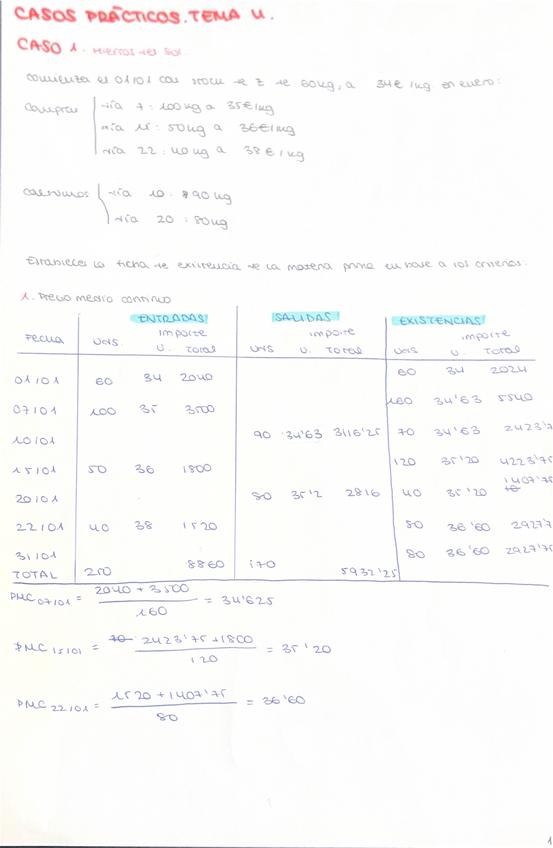 CASOS PRÁCTICOS. TEMA 4.
CASO 1. Hierros del Sol
Comienza el 01/01 con stock de Z de 60kg, a 34€/kg en enero:
Compras día 7: 100kg a 35€/kg
día 15: 50kg a 36€/kg
día 22: 40kg a 38€/kg
Consumos día 10: 90kg
día 20: 80kg
Establecer la ficha de existencia de la materia prima en base a los criterios:
1. Precio medio continuo
ENTRADAS SALIDAS EXISTENCIAS
Fecha UDS. importe U. TOTAL UDS importe U. TOTAL UDS importe U. TOTAL
01/01 60 34 2040 60 34 2024
07/01 100 35 3500 160 34'63 5540
10/01 90 34'63 3116'25 70 34'63 2423'7
15/01 50 36 1800 120 35'20 4223'75
20/01 80 35'2 2816 40 35'20 1407'75
22/01 40 38 1520 80 36'60 2927'7
31/01 80 36'60 2927'75
TOTAL 250 8860 170 5932'25
PMC 07/01 = 2040 + 3500 / 160 = 34'625
PMC 15/01 = 2423'75 + 1800 / 120 = 35'20
PMC 22/01 = 1520 + 1407'75 / 80 = 36'60
1